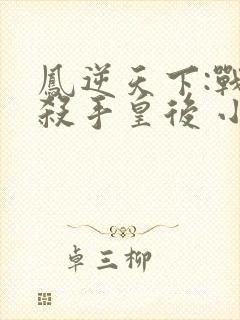 鳳逆天下:戰
殺手皇後 小
卓三柳